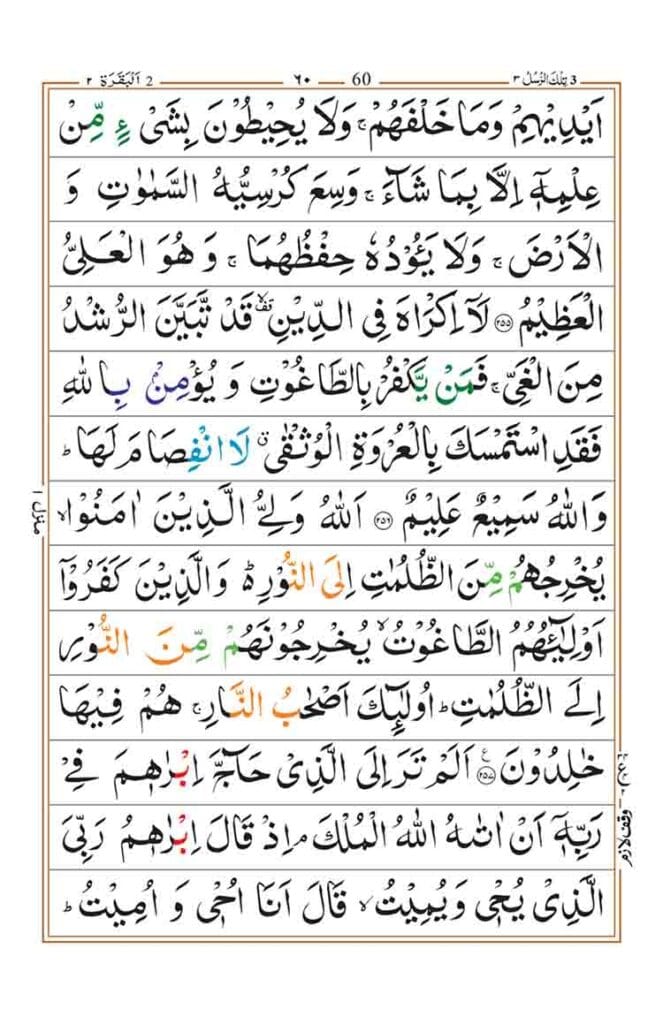 3 تِلْكَ الرُّسُلُ ٣ 60 ٦٠ 2 اَلْبَقَرَة ٢
اَيْدِيْهِمْ وَمَا خَلْفَهُمْ ۚ وَلَا يُحِيْطُوْنَ بِشَيْءٍ مِّنْ
عِلْمِهٖٓ اِلَّا بِمَا شَآءَ ۚ وَسِعَ كُرْسِيُّهُ السَّمٰوٰتِ وَ
الْاَرْضَ ۚ وَلَا يَـُٔوْدُهٗ حِفْظُهُمَا ۚ وَ هُوَ الْعَلِيُّ
الْعَظِيْمُ ۝٢٥٥ لَآ اِكْرَاهَ فِي الدِّيْنِ ۙ قَدْ تَّبَيَّنَ الرُّشْدُ
مِنَ الْغَيِّ ۚ فَمَنْ يَّكْفُرْ بِالطَّاغُوْتِ وَ يُؤْمِنْۢ بِاللّٰهِ
فَقَدِ اسْتَمْسَكَ بِالْعُرْوَةِ الْوُثْقٰى ۗ لَا انْفِصَامَ لَهَا ؕ
وَاللّٰهُ سَمِيْعٌ عَلِيْمٌ ۝٢٥٦ اَللّٰهُ وَلِيُّ الَّذِيْنَ اٰمَنُوْا ۙ
يُخْرِجُهُمْ مِّنَ الظُّلُمٰتِ اِلَى النُّوْرِ ؕ۬ وَالَّذِيْنَ كَفَرُوْٓا
اَوْلِيٰٓـُٔهُمُ الطَّاغُوْتُ ۙ يُخْرِجُوْنَهُمْ مِّنَ النُّوْرِ
اِلَى الظُّلُمٰتِ ؕ اُولٰٓئِكَ اَصْحٰبُ النَّارِ ۚ هُمْ فِيْهَا
خٰلِدُوْنَ ۝٢٥٧ ع اَلَمْ تَرَ اِلَى الَّذِيْ حَآجَّ اِبْرٰهٖمَ فِيْ
رَبِّهٖٓ اَنْ اٰتٰىهُ اللّٰهُ الْمُلْكَ ۘ اِذْ قَالَ اِبْرٰهٖمُ رَبِّيَ
الَّذِيْ يُحْيٖ وَيُمِيْتُ ۙ قَالَ اَنَا اُحْيٖ وَ اُمِيْتُ ؕ
منزل ١
وقف لازم